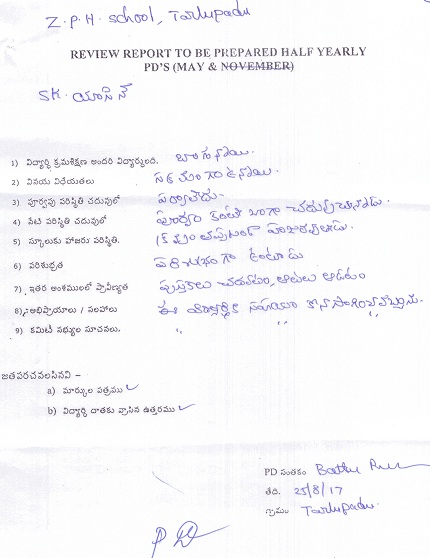 Z.P.H. School, Tarlupadu
REVIEW REPORT TO BE PREPARED HALF YEARLY
PD'S (MAY & NOVEMBER)
SK. యాసిన్
1) విద్యార్థి క్రమశిక్షణ అందరి విద్యార్థులది. బాగున్నాయి.
2) వినయ విధేయతలు సక్రమంగా ఉన్నాయి.
3) పూర్వపు పరిస్థితి చదువులో పర్వాలేదు-
4) నేటి పరిస్థితి చదువులో పూర్వం కంటే బాగా చదువుచున్నాడు.
5) స్కూలుకు హాజరు పరిస్థితి. క్రమం తప్పకుండా హాజరవుతాడు.
6) పరిశుభ్రత పరిశుభ్రంగా ఉంటాడు
7) ఇతర అంశములలో ప్రావీణ్యత పుస్తకాలు చదువటం, ఆటలు ఆడటం
8) అభిప్రాయాలు / సలహాలు ఈ ఆర్థిక సహాయం కొనసాగించవచ్చును.
9) కమిటీ సభ్యుల సూచనలు. " "
జతపరచవలసినవి –
a) మార్కుల పత్రము ✓
b) విద్యార్థి దాతకు వ్రాసిన ఉత్తరము ✓
PD సంతకం
తేది. 25/8/17
గ్రామం Tarlupadu.